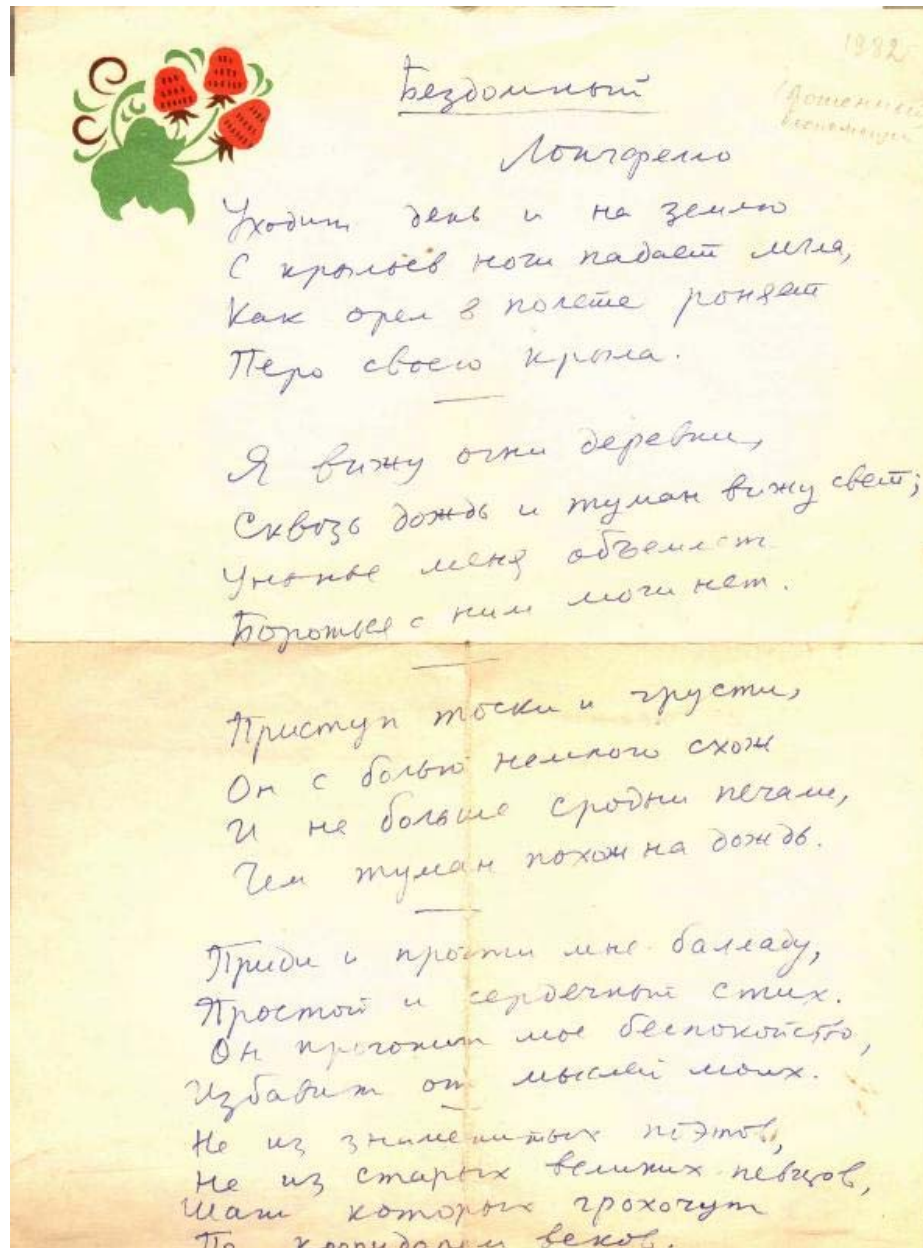 1982
Бездомный
Лонгфелло
Уходит день и на землю
С крыльев ночи падает мгла,
Как орел в полете роняет
Перо своего крыла.
Я вижу огни деревни,
Сквозь дождь и туман вижу свет;
Унынье меня объемлет
Бороться с ним мочи нет.
Приступ тоски и грусти,
Он с болью немного схож
И не больше сродни печали,
Чем туман похож на дождь.
Приди и прочти мне балладу,
Простой и сердечный стих.
Он прогонит мое беспокойство,
Избавит от мыслей моих.
Не из знаменитых поэтов,
Не из старых великих певцов,
Шаги которых грохочут
По коридорам веков.